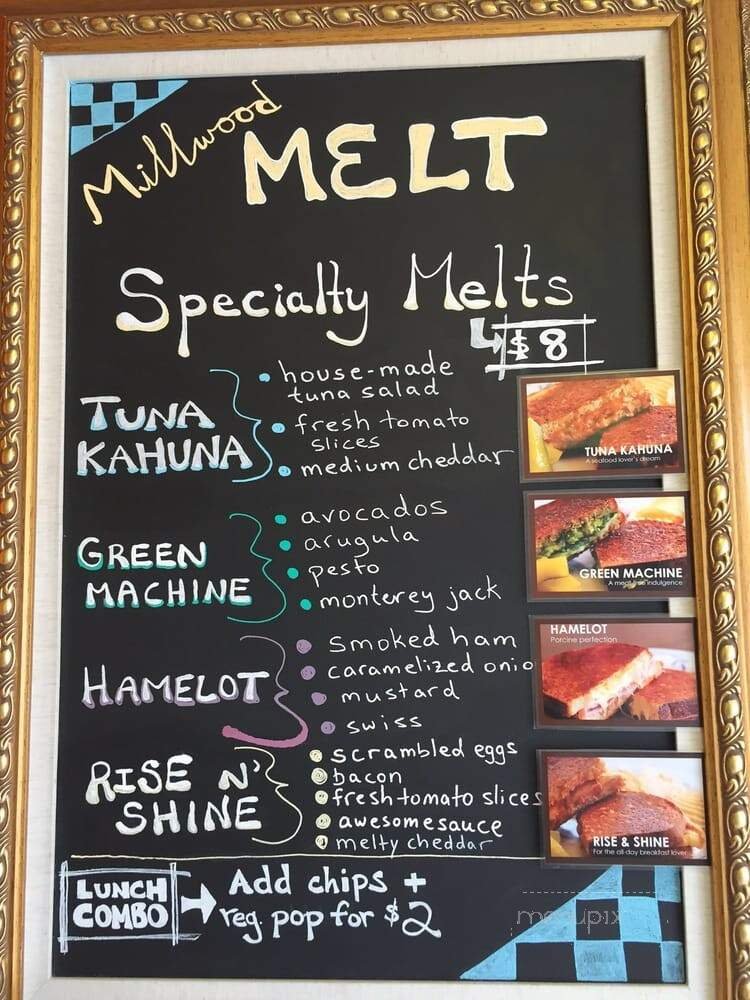 Millwood MELT
Specialty Melts
$8
TUNA
KAHUNA
• house-made
tuna salad
• fresh tomato
slices
• medium cheddar
TUNA KAHUNA
A seafood lover's dream
GREEN
MACHINE
• avocados
• arugula
• pesto
• monterey jack
GREEN MACHINE
A meat-free indulgence
HAMELOT
• smoked ham
• caramelized onio
• mustard
• swiss
HAMELOT
Porcine perfection
RISE N'
SHINE
• scrambled eggs
• bacon
• fresh tomato slices
• awesomesauce
• melty cheddar
RISE & SHINE
For the all-day breakfast lover
LUNCH
COMBO
Add chips +
reg. pop for $2
menupix